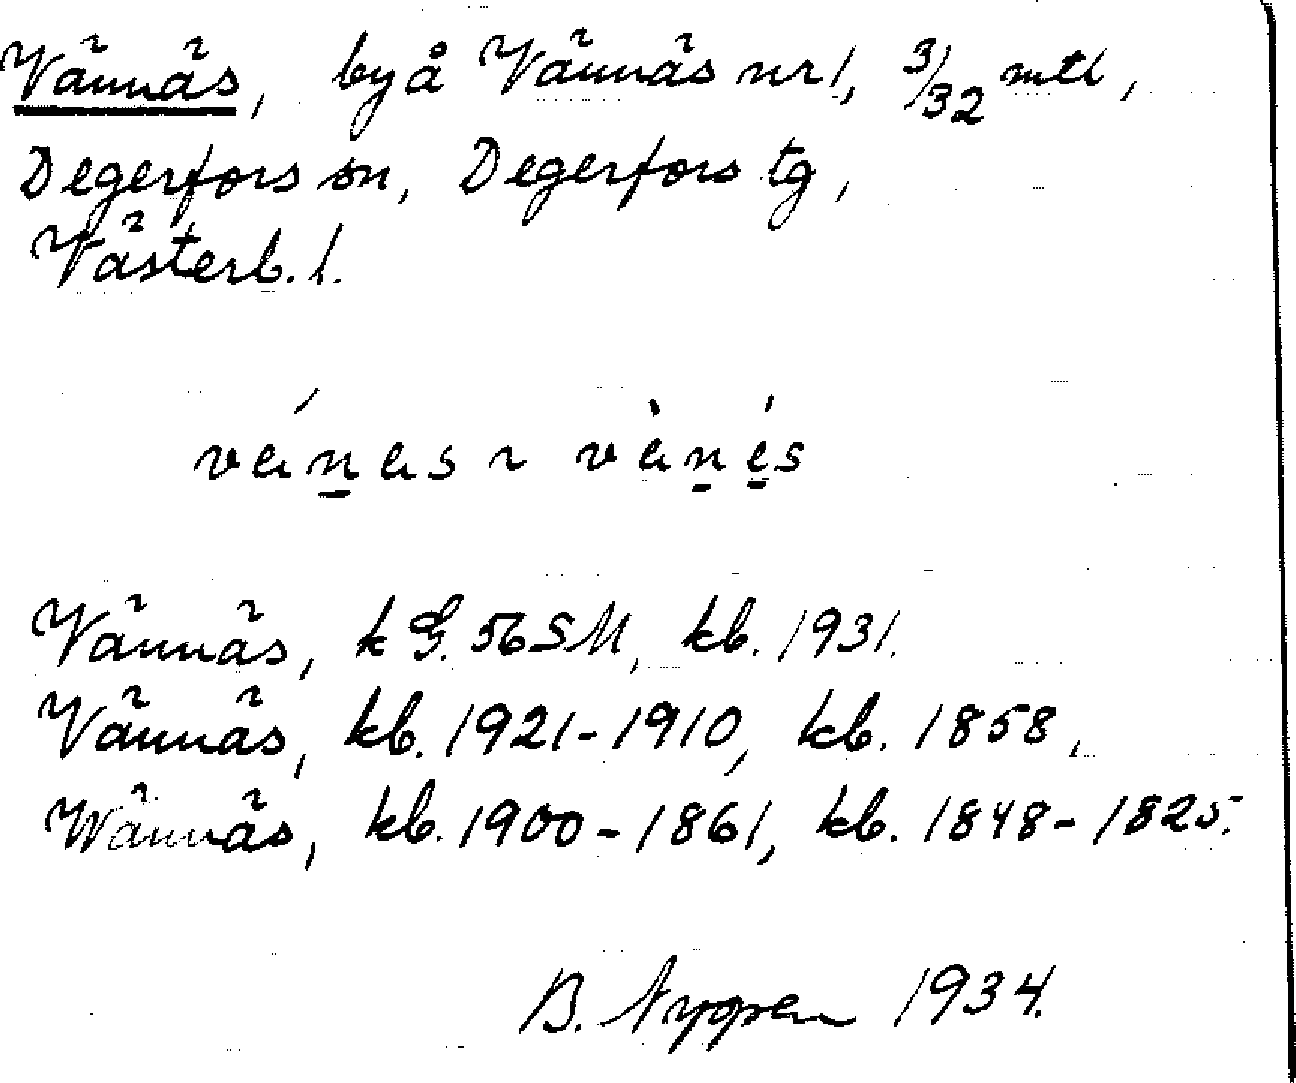 Vännäs, by å Vännäs nr 1, 3/32 mtl,
Degerfors sn, Degerfors tg,
Västerb. l.
Vännäs, k G. 56 SM, kb. 1931.
Vännäs, kb. 1921-1910, kb. 1858,
Wännäs, kb. 1900-1861, kb. 1848-1825.
B. Nygren 1934.